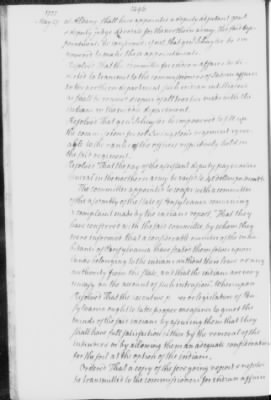 1777
1246
May 27
at Albany shall have appointed a deputy adjutant genl
& deputy judge advocate for the northern army
to make these appointments
Resolved That the committee for indian affairs be di-
rected to transmit to the commissioners of indian affairs
in the northern department such
as shall be
indians in the northern department.
Resolved That genl Schuyler be impowered to fill up
the commissions for colo. regiment agree-
able to the ranks of the officers respectively hold in
the said regiment.
Resolved That the pay of the assistant deputy paymaster
general in the northern army be raised to dollars per month.
The committee appointed to confer with a committee
of the assembly of the State of Pensylvania concerning
a complaint made by the indians report "That they
have conferred with the said committee, by whom they
were informed that a considerable number of the inha-
bitants of Pensylvania have seated themselves upon
lands belonging to the indians without their leave or any
authority from the state, and that the indians are very
uneasy on the account of such intrusion" Whereupon
Resolved That the executive or legislature of Pen-
sylvania ought to take proper measures to quiet the
minds of the said indians by assuring them that they
shall have full satisfaction either by the removal of the
intruders or by allowing them an adequate compensation
for the soil at the option of the indians.
Ordered That a copy of the foregoing report & resolve
be transmitted to the commissioners for indian affairs